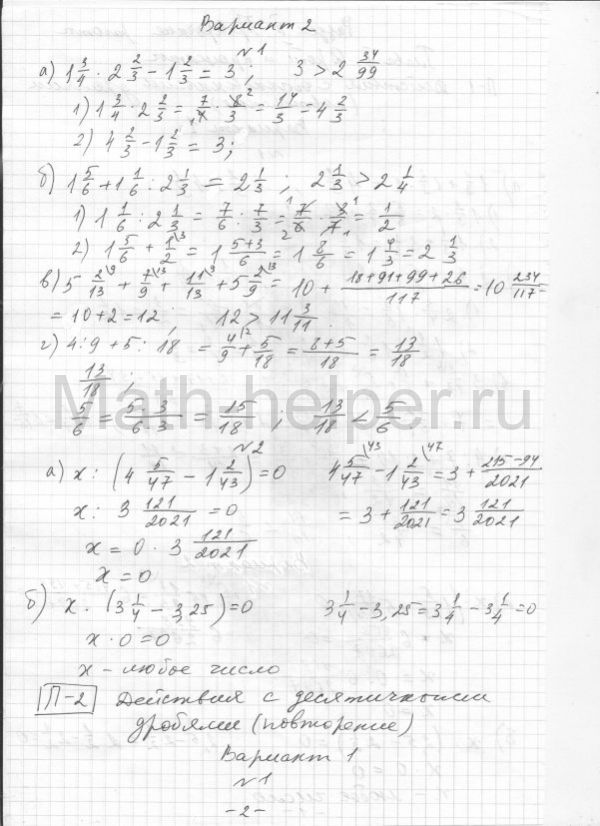 Вариант 2
№1
а) 1 3/4 · 2 2/3 − 1 2/3 = 3 ; 3 > 2 34/99
1) 1 3/4 · 2 2/3 = 7/4 · 8/3 = 14/3 = 4 2/3
2) 4 2/3 − 1 2/3 = 3;
б) 1 5/6 + 1 1/6 : 2 1/3 = 2 1/3 ; 2 1/3 > 2 1/4
1) 1 1/6 : 2 1/3 = 7/6 : 7/3 = 7/6 · 3/7 = 1/2
2) 1 5/6 + 1/2 = 1 (5+3)/6 = 1 8/6 = 1 4/3 = 2 1/3
в) 5 2/13 + 7/9 + 11/13 + 5 2/9 = 10 + (18+91+99+26)/117 = 10 234/117 =
= 10 + 2 = 12 ; 12 > 11 3/11
г) 4 : 9 + 5 : 18 = 4/9 + 5/18 = (8+5)/18 = 13/18
13/18 ;
5/6 = (5·3)/(6·3) = 15/18 ; 13/18 < 5/6
№2
а) x : (4 5/47 − 1 2/43) = 0 4 5/47 − 1 2/43 = 3 + (215−94)/2021
x : 3 121/2021 = 0 = 3 + 121/2021 = 3 121/2021
x = 0 · 3 121/2021
x = 0
б) x · (3 1/4 − 3,25) = 0 3 1/4 − 3,25 = 3 1/4 − 3 1/4 = 0
x · 0 = 0
x – любое число
П-2 Действия с десятичными
дробями (повторение)
Вариант 1
№1
-2-
Math-helper.ru